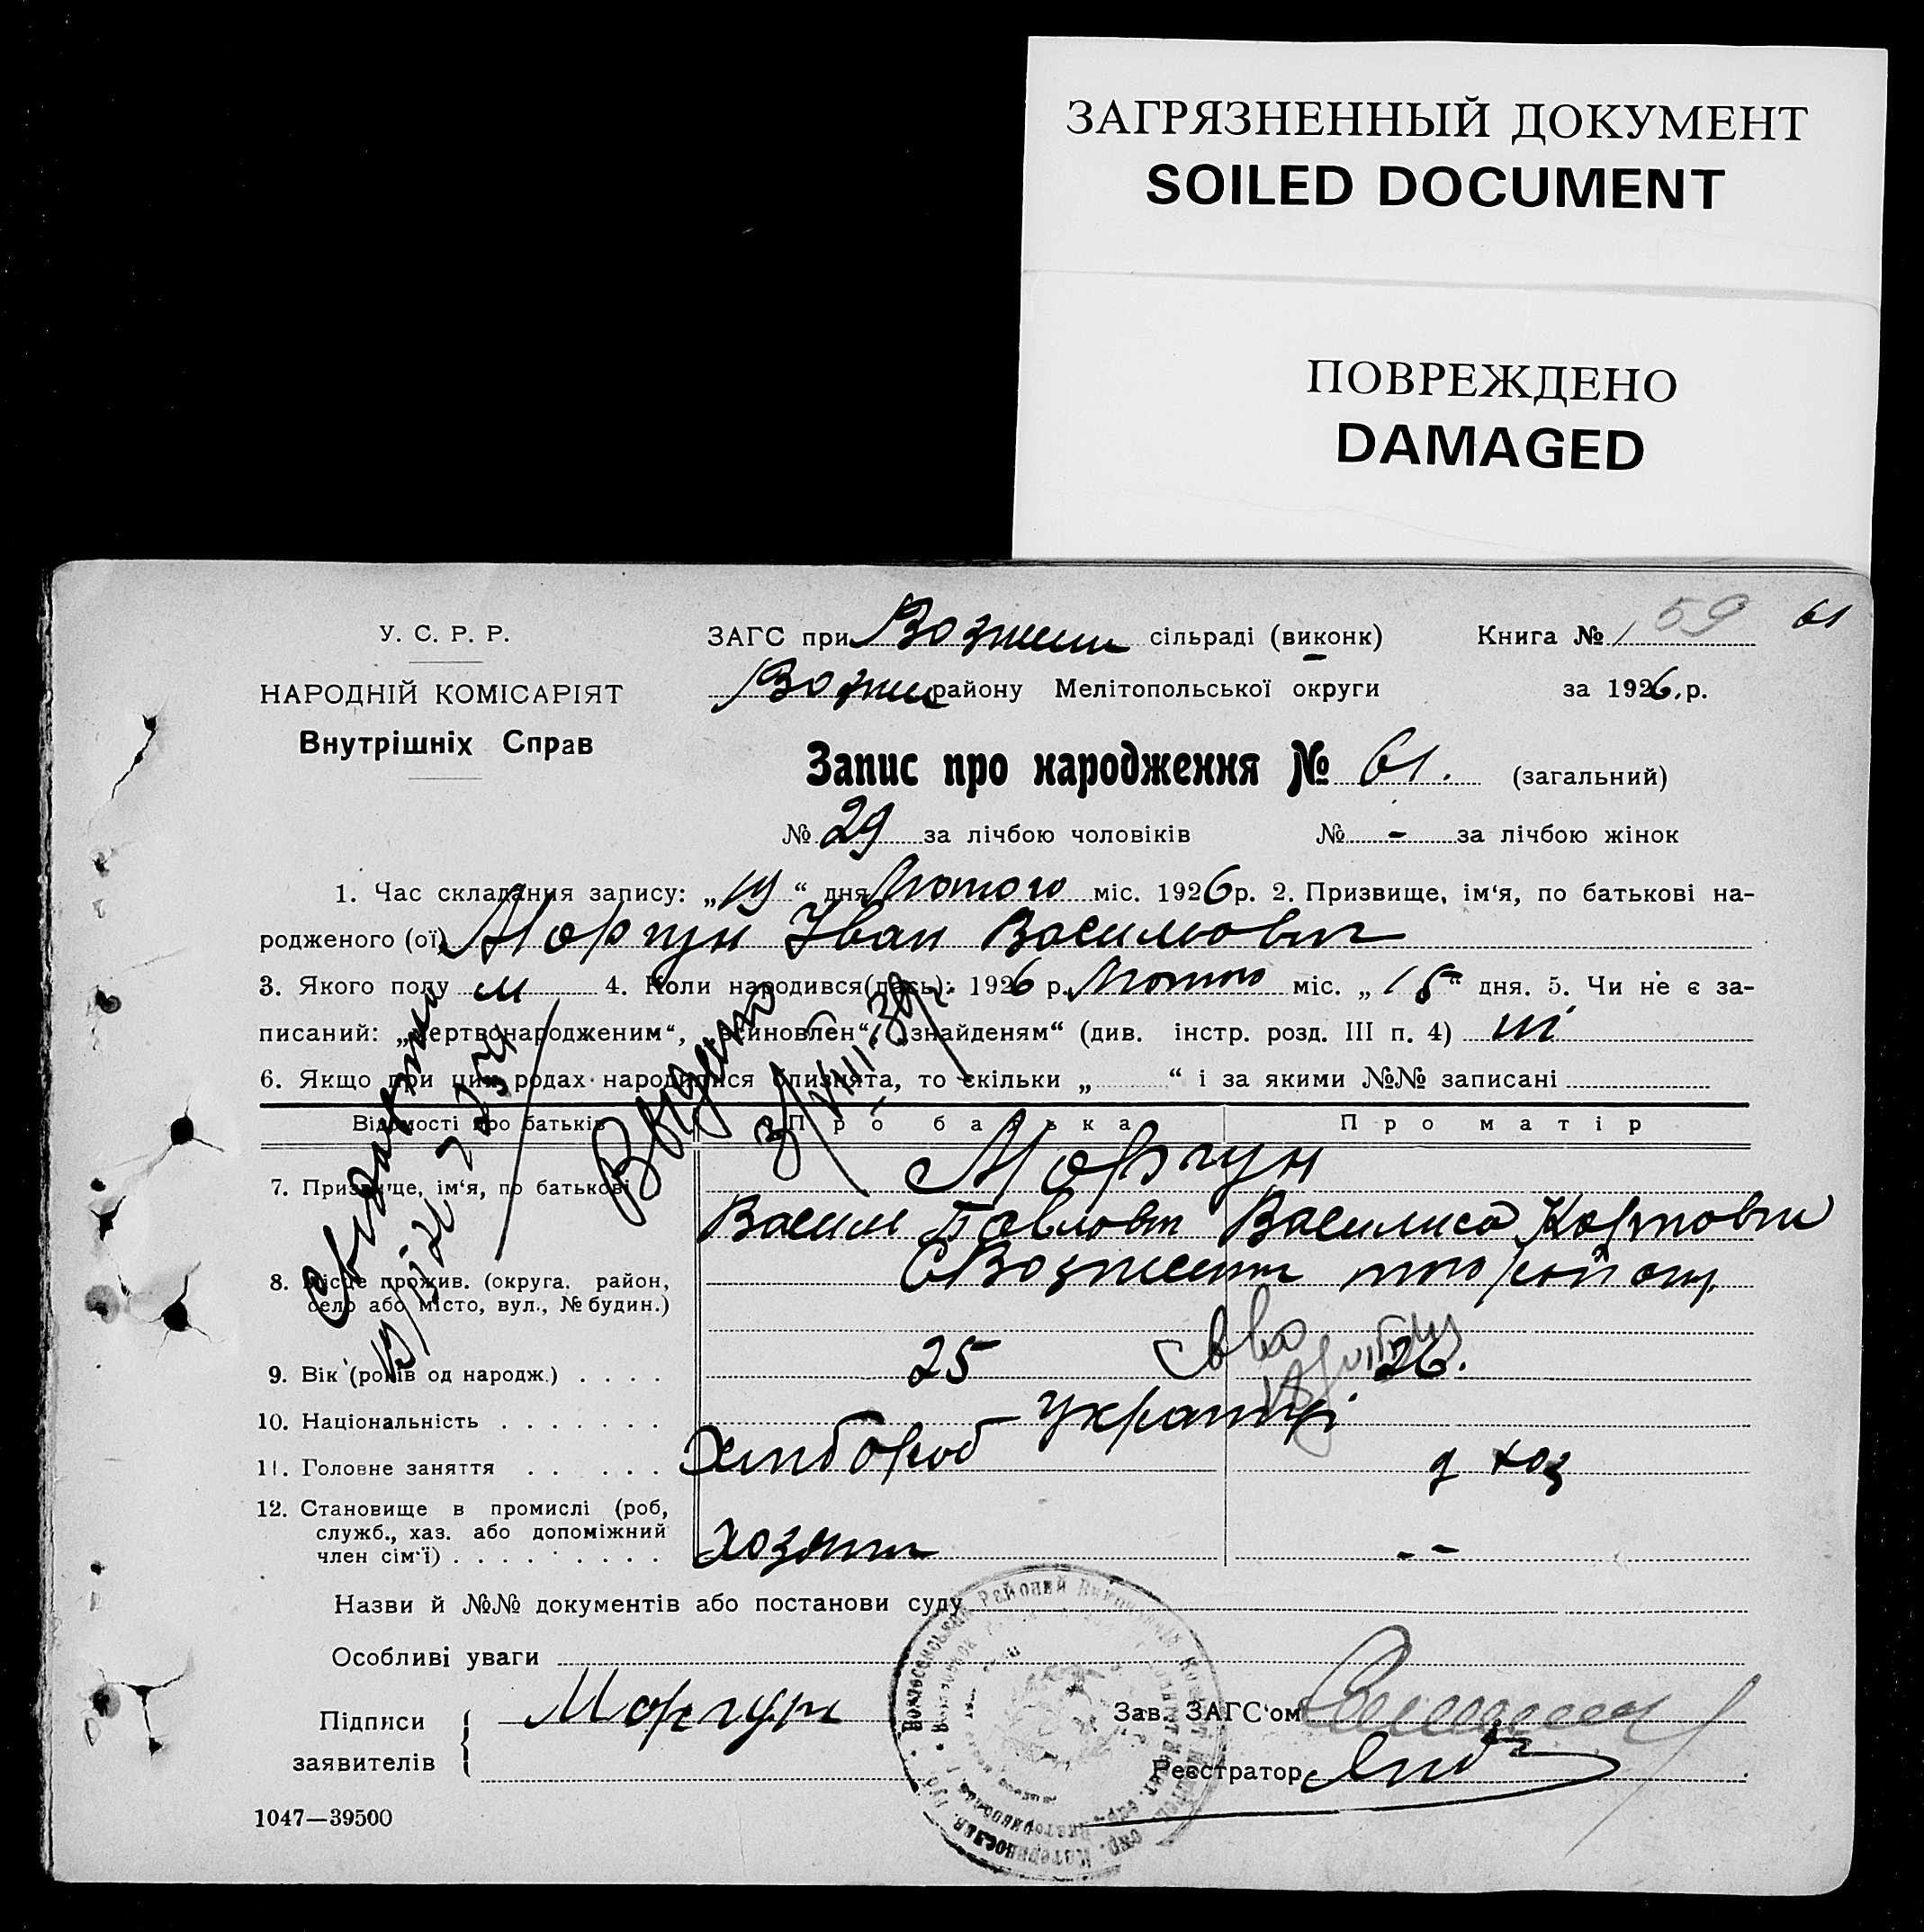 ЗАГРЯЗНЕННЫЙ ДОКУМЕНТ
SOILED DOCUMENT
ПОВРЕЖДЕНО
DAMAGED
У. С. Р. Р.
НАРОДНІЙ КОМІСАРІЯТ
Внутрішніх Справ
ЗАГС при сільраді (виконк) Книга № 59 61
району Мелітопольської округи за 1926 р.
Запис про народження № 61. (загальний)
№ 29 за лічбою чоловіків № - за лічбою жінок
1. Час складання запису: „19“ дня Лютого міс. 1926 р. 2. Призвище, ім‘я, по батькові на-
родженого (ої) Моргун Іван Васильович
3. Якого полу м 4. Коли народився(лась): 1926 р. Лютого міс. „15“ дня. 5. Чи не є за-
писаний: „мертвонародженим“, „всиновлен“, „знайденям“ (див. інстр. розд. III п. 4) ні
6. Якщо при цих родах народилися близнята, то скільки „ “ і за якими №№ записані
Відомості про батьків Про батька Про матір
7. Призвище, ім‘я, по батькові Моргун
Василь Павлович Василиса Карповна
8. Місце прожив. (округа, район,
село або місто, вул., № будин.)
9. Вік (років од народж.) . . . . 25 26.
10. Національність . . . . . . . українці
11. Головне заняття . . . . . . Хлібороб д хоз
12. Становище в промислі (роб,
служб., хаз. або допоміжний
член сім‘ї) . . . . . . . . . хозяин - -
Видано
31/VIII-39 г.
Назви й №№ документів або постанови суду
Особливі уваги
Підписи
заявителів
Моргун
Зав. ЗАГС‘ом
Реєстратор
1047—39500